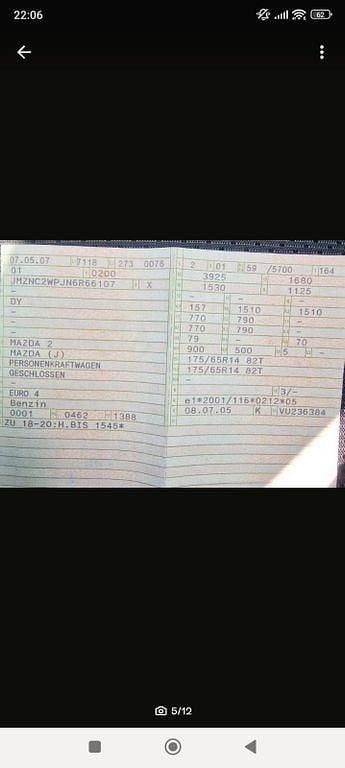 22:06
62
07.05.07 7118 273 0076
01 0200
JMZNC2WPJN6R56107 X
-
DY
-
-
-
MAZDA 2
MAZDA (J)
PERSONENKRAFTWAGEN
GESCHLOSSEN
-
EURO 4
Benzin
0001 0462 1388
ZU 18-20:H.BIS 1545*
2 01 59 /5700 164
3925 1680
1530 1125
- - -
157 1510 1510
770 790 -
770 790 -
79 - 70
900 500 5 -
175/65R14 82T
175/65R14 82T
-
3/-
e1*2001/116*0212*05
08.07.05 K VU236384
5/12